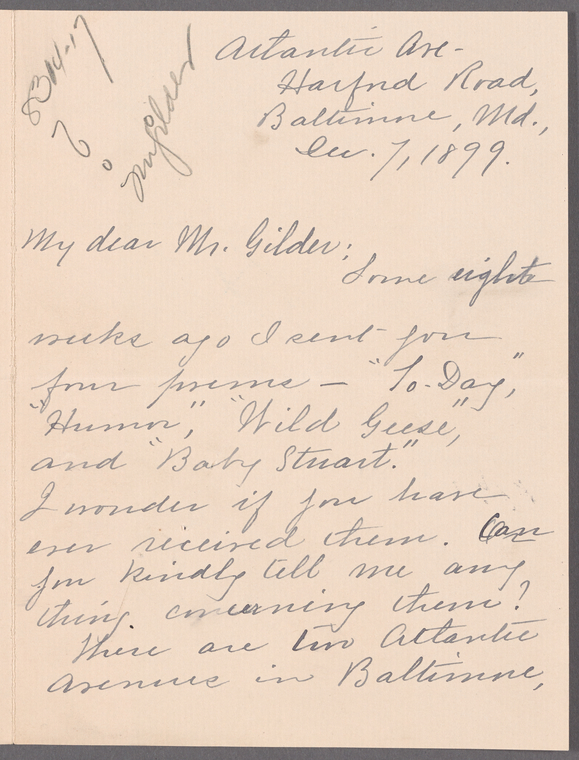 8304-17
Mr Gilder
Atlantic Ave -
Harford Road,
Baltimore, Md.,
Dec. 7, 1899.
My dear Mr. Gilder;
Some eight
weeks ago I sent you
four poems — "To-Day,"
"Humor," "Wild Geese,"
and "Baby Stuart."
I wonder if you have
ever received them. Can
you kindly tell me any
thing concerning them?
There are two Atlantic
Avenues in Baltimore,